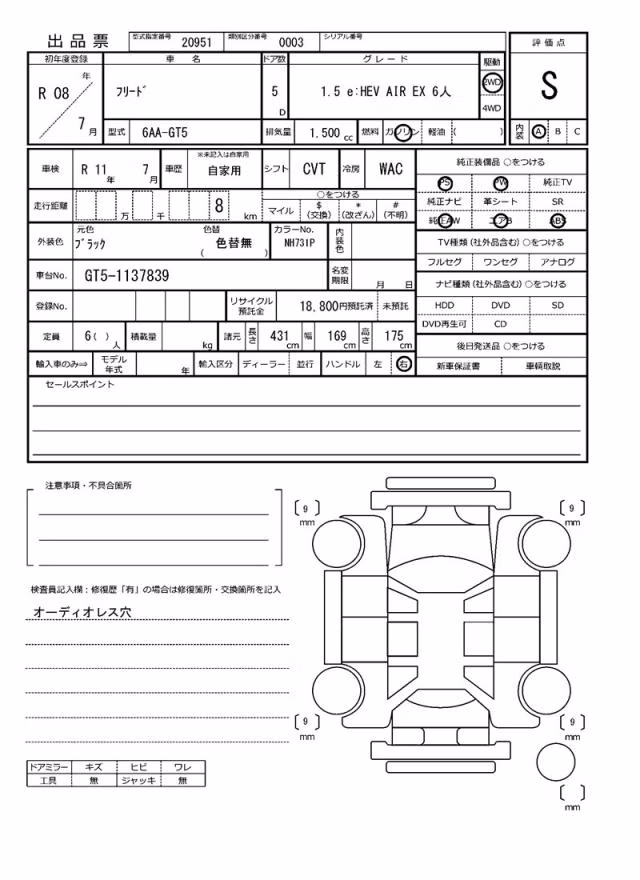 出品票 型式指定番号 20951 類別区分番号 0003 シリアル番号
評価点
S
内装 A B C
初年度登録 車名 ドア数 グレード 駆動
R 08 年 7 月 フリード 5 D 1.5 e:HEV AIR EX 6人 2WD 4WD
型式 6AA-GT5 排気量 1.500 cc 燃料 ガソリン 軽油 ( )
車検 R 11 年 7 月 車歴 ※未記入は自家用 自家用 シフト CVT 冷房 WAC
走行距離 万 千 8 km ○をつける
マイル $(交換) *(改ざん) #(不明)
外装色 元色 ブラック 色替 ( 色替無 ) カラーNo. NH731P 内装色
車台No. GT5-1137839 名変期限 月 日
登録No. リサイクル預託金 18,800円預託済 未預託
定員 6( )人 積載量 kg 諸元 長さ 431 cm 幅 169 cm 高さ 175 cm
輸入車のみ⇒ モデル年式 年 輸入区分 ディーラー 並行 ハンドル 左 右
純正装備品 ○をつける
PS PW 純正TV
純正ナビ 革シート SR
純正AW エアB ABS
TV種類(社外品含む)○をつける
フルセグ ワンセグ アナログ
ナビ種類(社外品含む)○をつける
HDD DVD SD
DVD再生可 CD
後日発送品 ○をつける
新車保証書 車輌取説
セールスポイント
注意事項・不具合箇所
検査員記入欄：修復歴「有」の場合は修復箇所・交換箇所を記入
オーディオレス穴
ドアミラー キズ ヒビ ワレ
工具 無 ジャッキ 無
[ 9 ] mm
[ 9 ] mm
[ 9 ] mm
[ 9 ] mm
[ ] mm